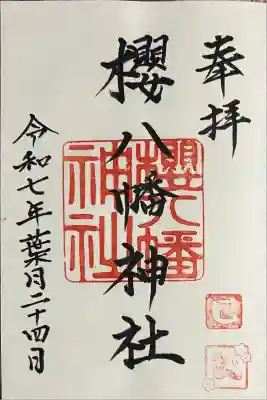 奉拝
櫻八幡神社
櫻八幡
神社
令和七年葉月二十四日